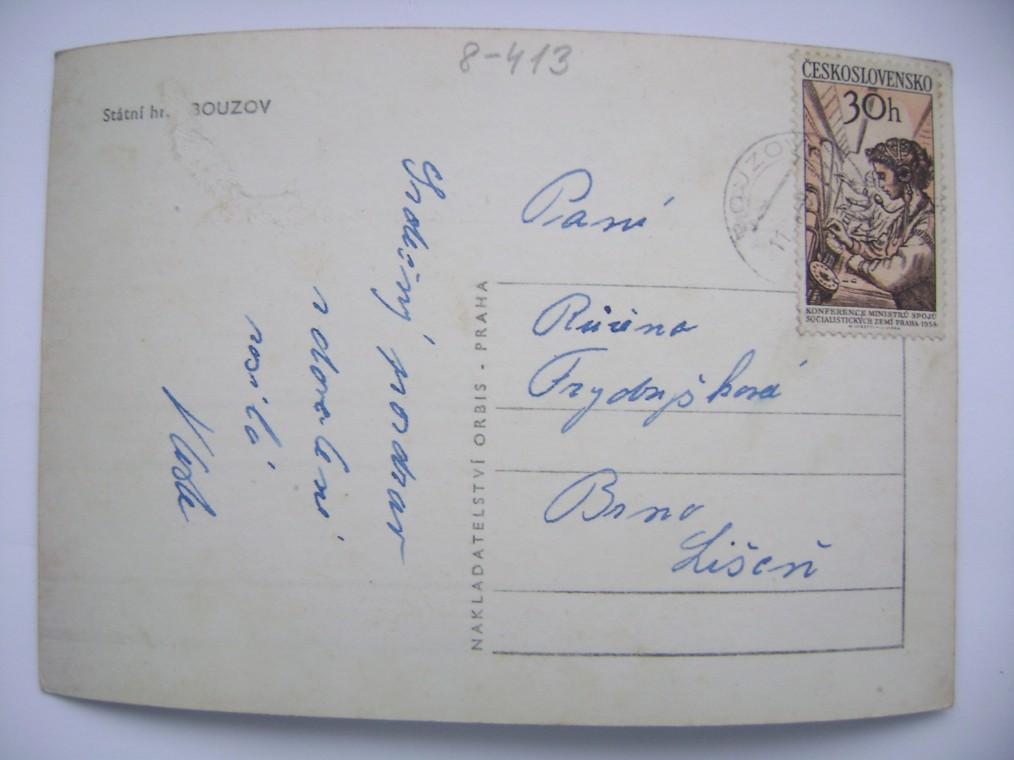 8-413
Státní hr. BOUZOV
ČESKOSLOVENSKO
30h
KONFERENCE MINISTRŮ SPOJŮ
SOCIALISTICKÝCH ZEMÍ PRAHA 1958
BOUZOV
11.
Srdečný pozdrav
z dovolené
posílá
NAKLADATELSTVÍ ORBIS - PRAHA
Paní
Růžena
Brno
Líšeň